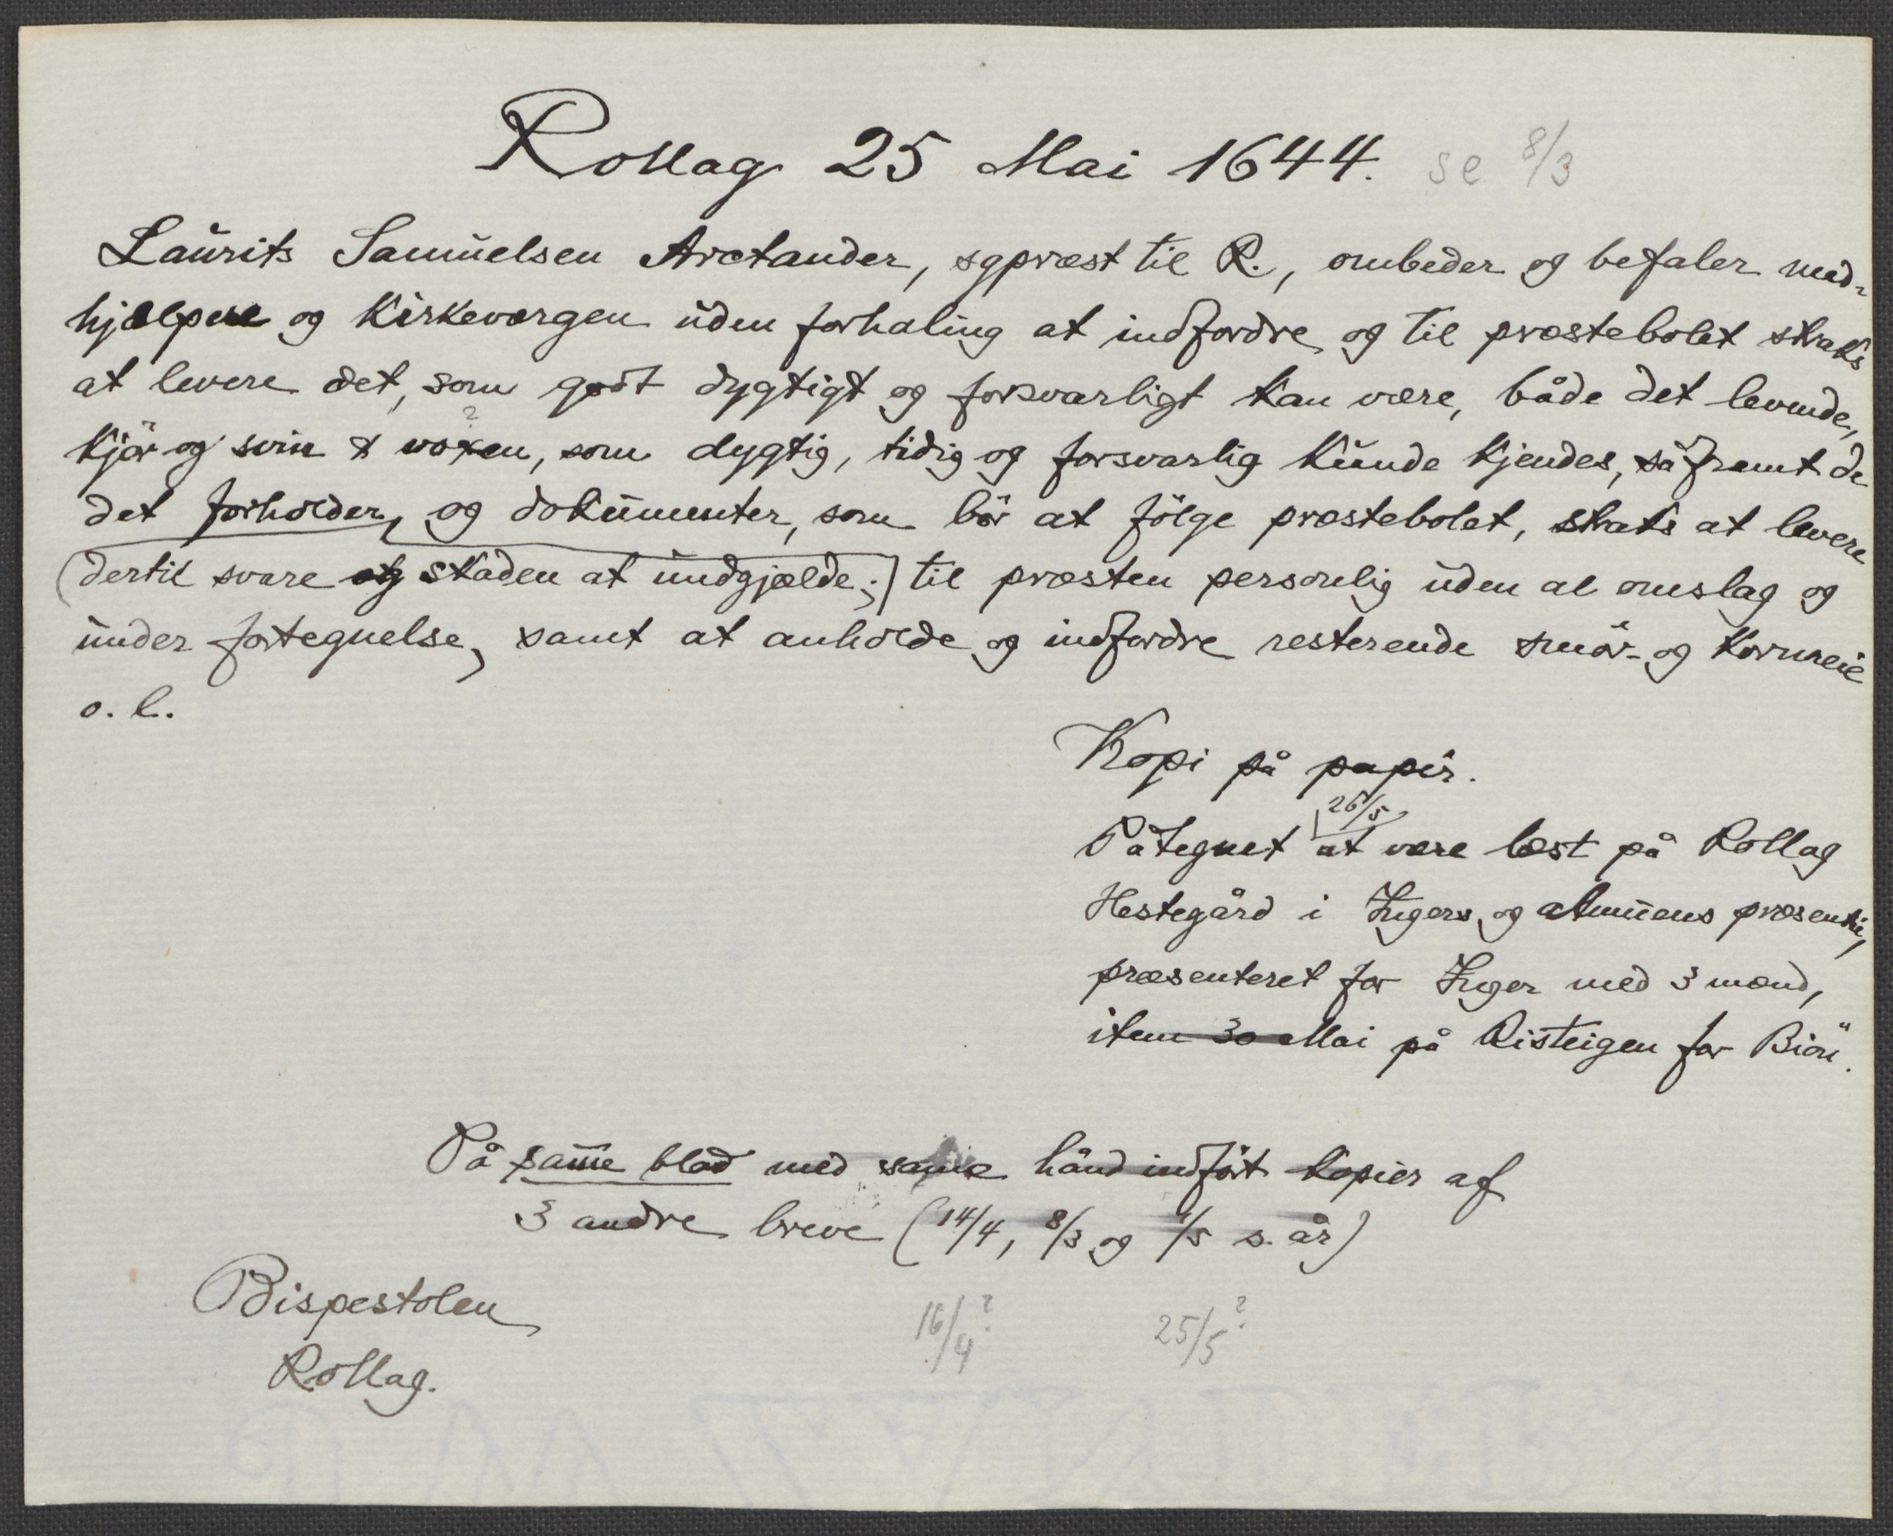 Rollag 25 Mai 1644. se 8/3
Laurits Samuelsen Arctander, sgpræst til R., ombeder og befaler med-
hjælpere og kirkeværgen uden forhaling at indfordre og til præstebolet straks
at levere det, som godt dygtigt og forsvarligt kan være, både det levende,
kjör og svin & voxen?, som dygtig, tidig og forsvarlig kunde kjendes, såfremt de
det forholder, og dokumenter, som bör at fölge præstebolet, straks at levere
(dertil svare og skaden at undgjælde;) til præsten personlig uden al omslag og
under fortegnelse, samt at anholde og indfordre resterende smör- og korn
o. l.
Kopi på papir.
26/5
Påtegnet at være læst på Rollag
Hestegård i Ingers og almuens præsentii,
præsenteret for Inger med 3 mænd,
item 30 Mai på Risteigen for Biön.
På samme blad med samme hånd indfört kopier af
3 andre breve (14/4, 8/3 og 1/5 s. år)
16/4? 25/5?
Bispestolen
Rollag.